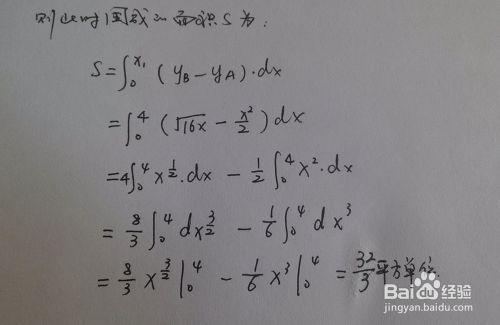 则此时围成的面积S为:
S=∫₀^x₁ (y_B-y_A)·dx
=∫₀^4 (√16x - x²/2) dx
=4∫₀^4 x^½·dx - ½∫₀^4 x²·dx
= 8/3 ∫₀^4 dx^(3/2) - 1/6 ∫₀^4 dx³
= 8/3 x^(3/2) |₀^4 - 1/6 x³ |₀^4 = 32/3 平方单位.
Baidu 经验
jingyan.baidu.com